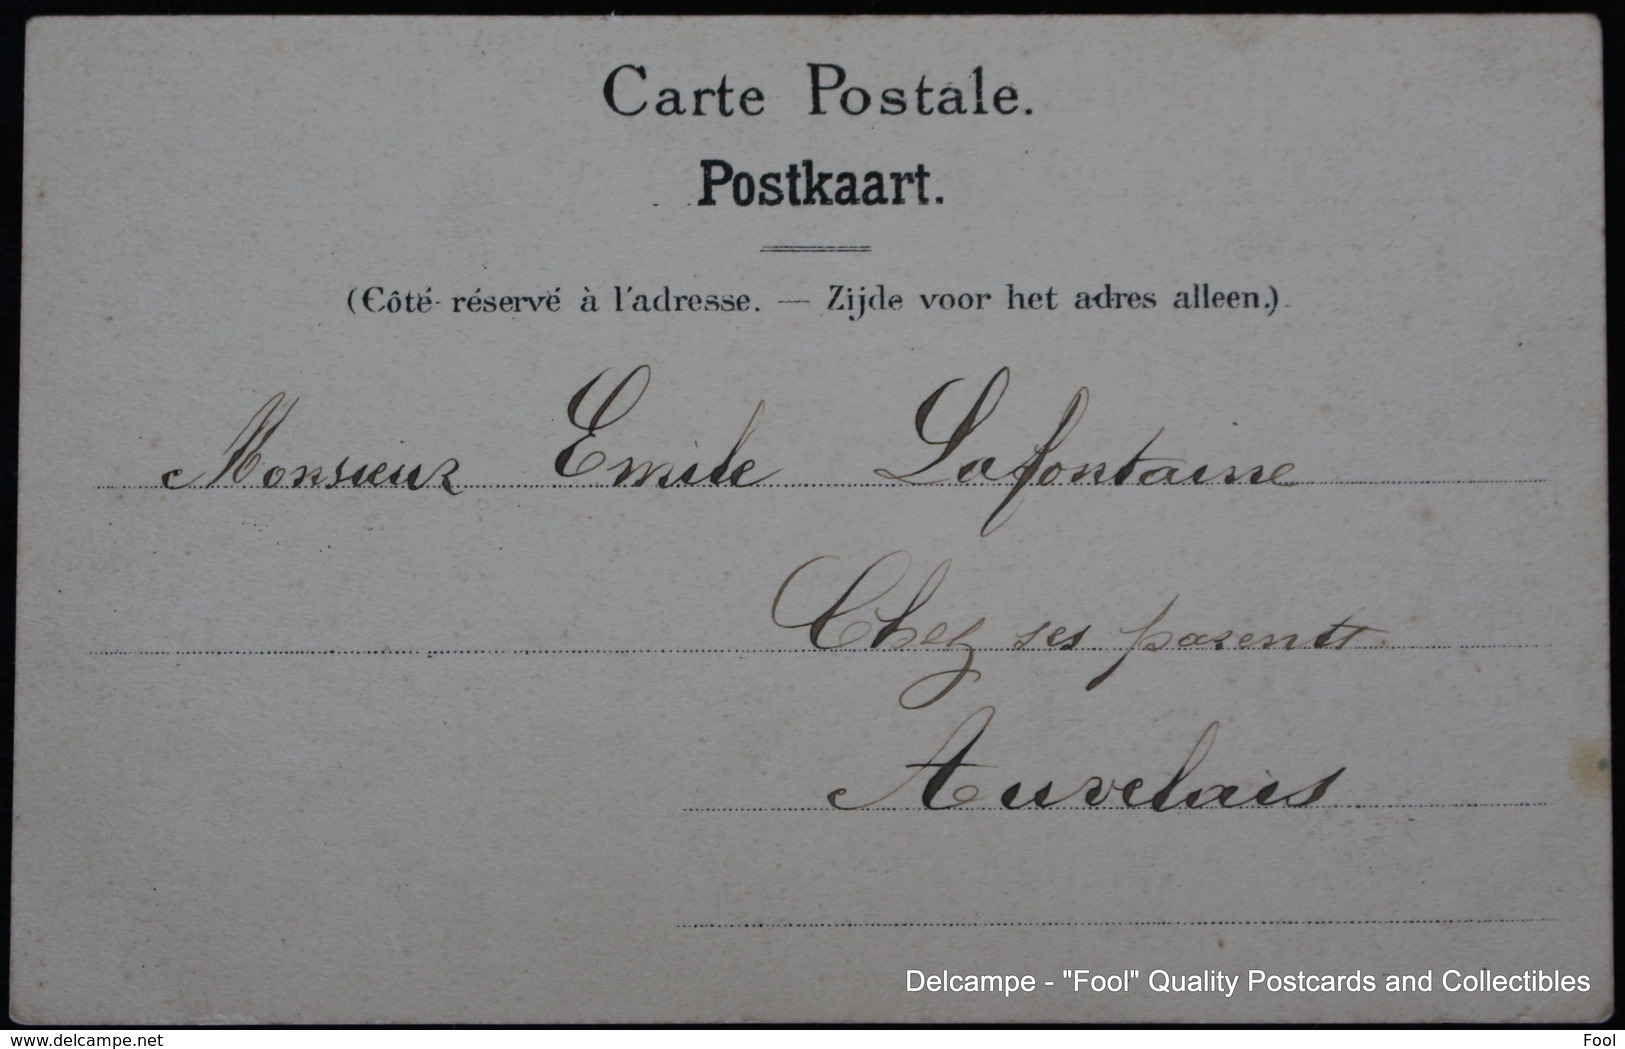 Carte Postale.
Postkaart.
(Côté réservé à l'adresse. — Zijde voor het adres alleen.)
Monsieur Emile Lafontaine
Chez ses parents
Auvelais
Delcampe - "Fool" Quality Postcards and Collectibles
www.delcampe.net
Fool